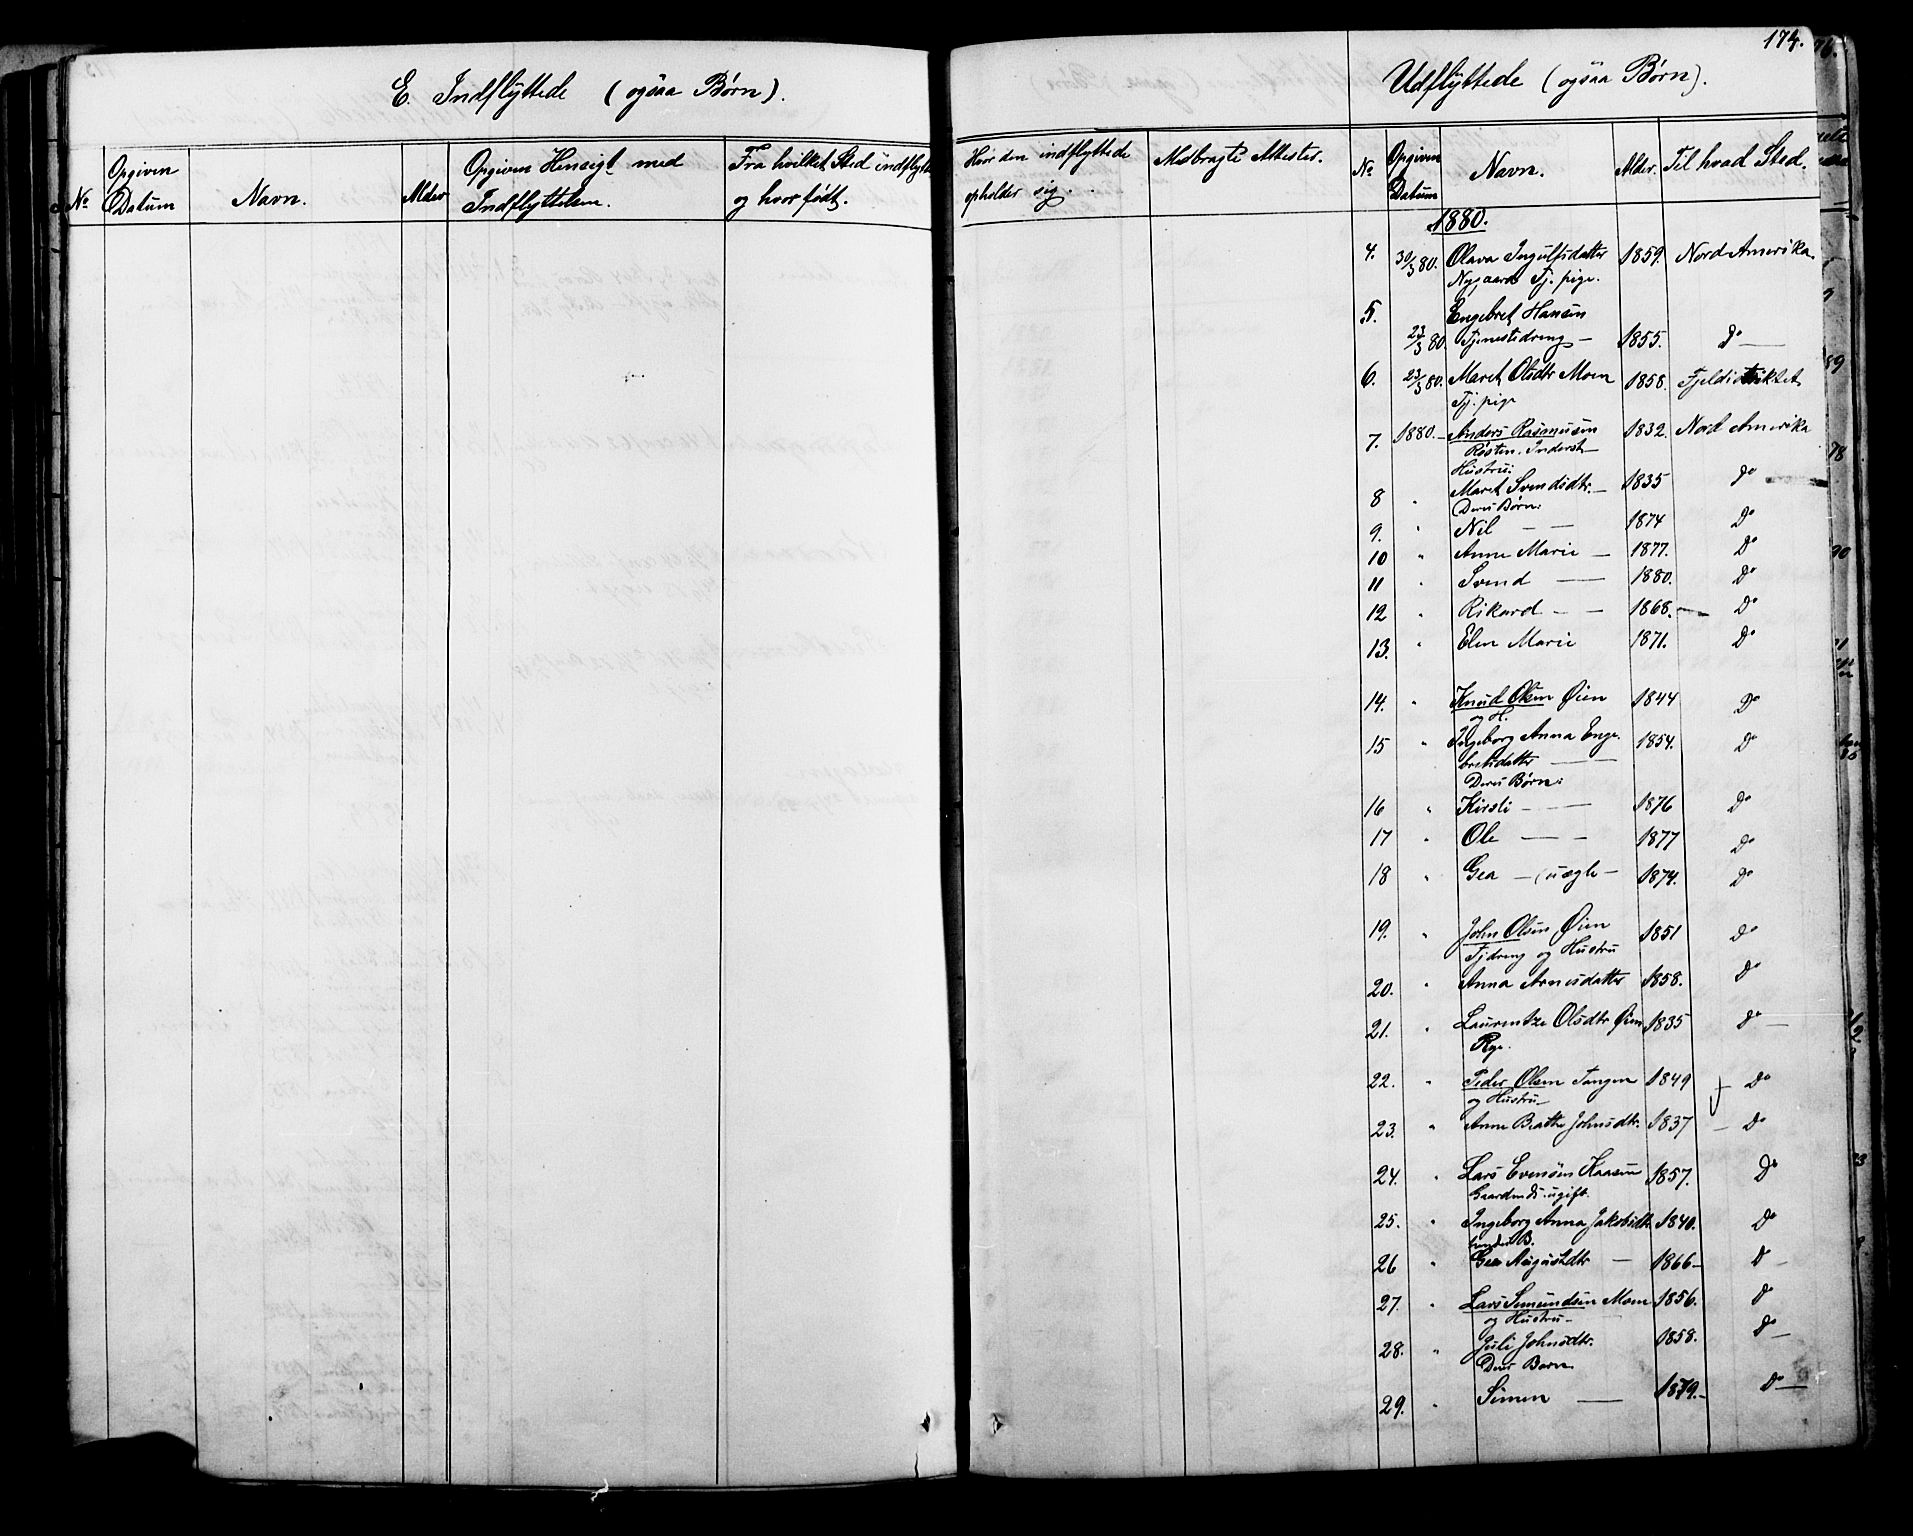 E. Indflyttede (ogsaa Børn).
No
Opgiven Datum
Navn.
Alder
Opgiven Hensigt med Indflyttelsen.
Fra hvilket Sted indflyttet og hvor født.
174.
Udflyttede (ogsaa Børn).
Hvor den indflyttede opholder sig.
Medbragte Attester.
No
Opgiven Datum
Navn.
Alder.
Til hvad Sted.
1880.
4. 30/3 80. Olava Ingulfsdatter 1859. Nord Amerika.
Nygaard Tj. pige.
5. Engebret Hansen
23/3 80. Tjenestedreng — 1855. Do —
6. 23/3 80. Maret Olsdtr Moen 1858. Fjeldistriktet
Tj. pige
7. 1880. — Anders Rasmusen 1832. Nord Amerika
Røsten. Inderst —
Hustru:
8 " Maret Svendsdtr. — 1835 Do
Deres Børn:
9. " Nil — — 1874 Do
10 " Anne Marie — 1877. Do
11 " Svend — 1880. Do
12 " Rikard — — 1868. — Do
13. " Elen Marie 1871. Do
14. " Knud Olsen Øien 1844 Do
og H.
15 " Ingeborg Anna Enge- 1854. Do
bretsdatter —
Deres Børn:
16 " Kirsti — 1876 Do
17 " Ole — — 1877 Do
18 " Gea — (uægte — 1874. Do
19. " John Olsen Øien 1851 Do
Tjdreng og Hustru
20. " Anna Arnesdatter 1858. Do
21. " Laurentze Olsdtr Øien 1835 Do —
Pige.
22. " Peder Olsen Tangen 1849 Do
og Hustru —
23. " Anne Beatte Johnsdtr. 1837 — Do
24. " Lars Evensen Kaasen 1857. Do
Gaardmds. ugift.
25. " Ingeborg Anna Jakobsdtr 1840. Do
hendes B.
26 " Gea Augustdtr — 1866 — Do —
27. " Lars Simundsen Moen 1856. Do
og Hustru —
28. " Juli Johnsdtr. 1858. Do —
Deres Barn
29. " Simen — 1879. — Do —